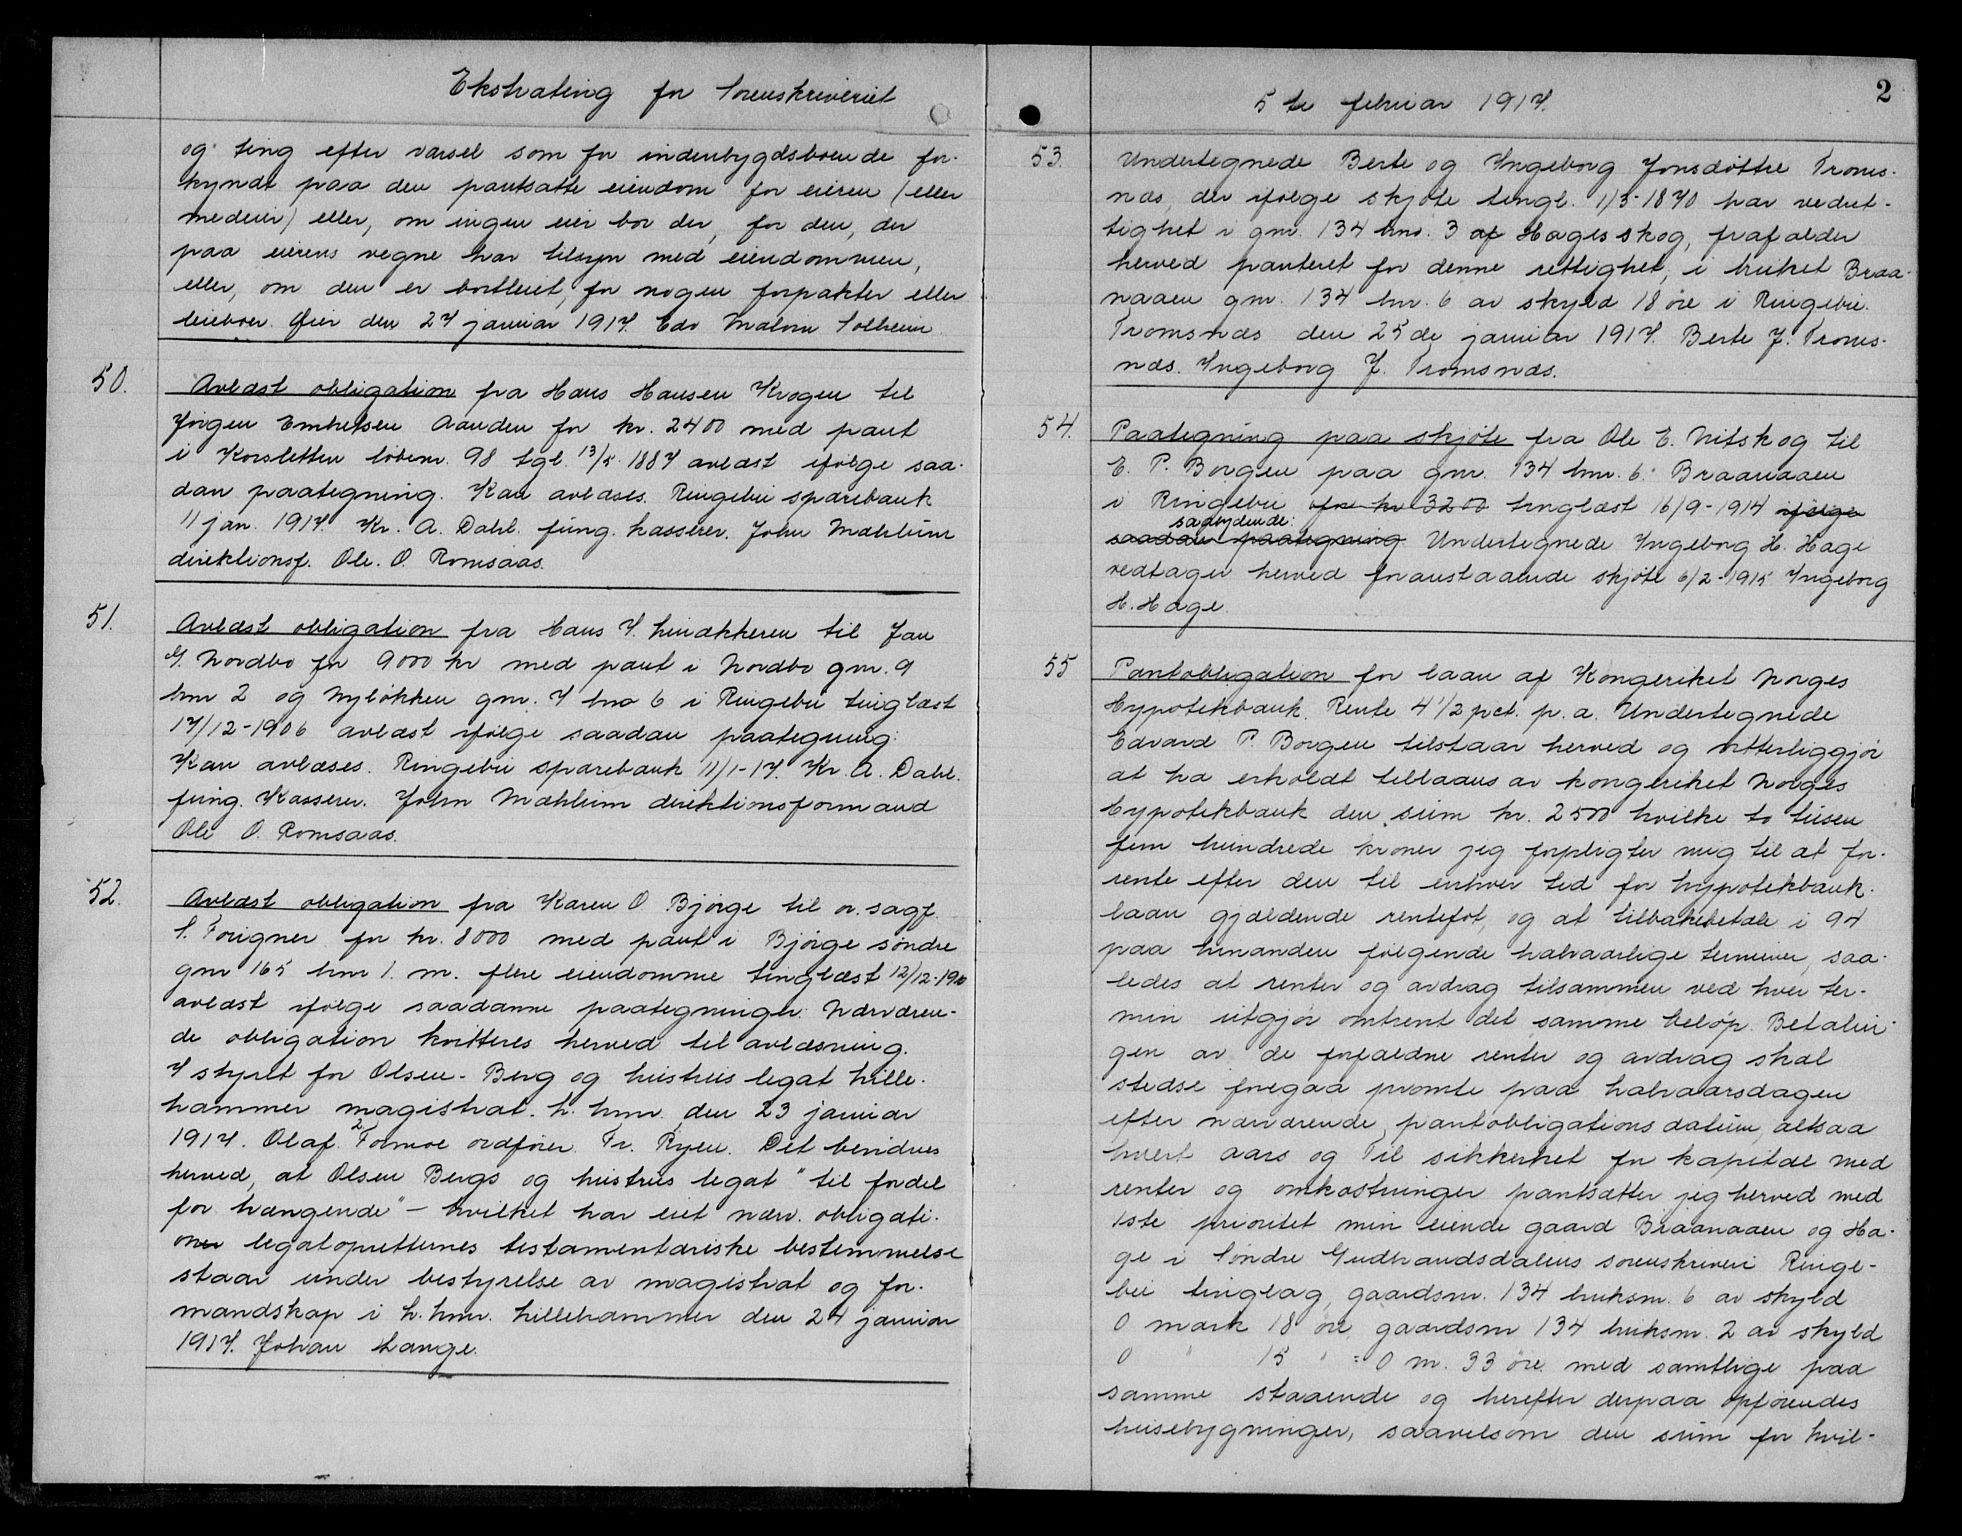 Ekstrating for Sorenskriveriet
og ting efter varsel som for indenbygdsboende for-
kyndt paa den pantsatte eiendom for eieren (eller
medeier) eller, om ingen eier bor der, for den, der
paa eierens vegne har tilsyn med eiendommen,
eller, om den er bortleiet, for nogen forpakter eller
leieboer. Øier den 27 januar 1917. Edv Malvin Solheim
50.
Avlæst obligation fra Hans Hansen Krogen til
Jørgen Embretsen Aanden for kr. 2400 med pant
i Korsletten løbenr. 98 tgl. 13/5 1887 avlæst ifølge saa-
dan paategning. Kan avlæses. Ringebu sparebank
11 jan. 1917. Kr. A. Dahl. fung. kasserer. John Mæhlum
direktionsf. Ole. O. Romsaas.
51.
Avlæst obligation fra Hans I. Linækkeren til Jan
G. Nordbo for 9000 kr med pant i Nordbo gnr. 9
bnr 2 og Nyløkken gnr. 7 bno 6 i Ringebu tinglæst
17/12-1906 avlæst ifølge saadan paategning:
Kan avlæses. Ringebu sparebank 11/1-17. Kr A. Dahl.
fung. Kasserer. John Mæhlum direktionsformand
Ole O. Romsaas.
52.
Avlæst obligation fra Karen O Bjørge til o. sagf.
S. Forigner for kr. 8000 med pant i Bjørge søndre
gnr 165 bnr 1. m. flere eiendomme tinglæst 12/12-1910
avlæst ifølge saadanne paategninger: Nærværen-
de obligation kvitteres herved til avlæsning.
I styret for Olsen-Berg og hustrus legat Lille-
hammer magistrat. L. hmr. den 23 januar
1917. Olaf Fornoe ordfører. Fr. Ryen. Det bevidnes
herved, at Olsen Bergs og hustrus legat "til fordel
for trængende" - hvilket har eiet nærv. obligati-
oner legatopretternes testamentariske bestemmelse
staar under bestyrelse av magistrat og for-
mandskap i L. hmr. Lillehammer den 24 januar
1917. Johan Lange.
5te februar 1917.
2
53.
Undertegnede Berte og Ingeborg Jonsdøttre Troms-
næs, der ifølge skjøte tingl. 1/3-1870 har vedret-
tighet i gnr. 134 bno. 3 af Hages skog, frafalder
herved panteret for denne rettighet, i bruket Braa-
naaen gnr. 134 bnr. 6 av skyld 18 øre i Ringebu.
Tromsnæs den 25de januar 1917. Berte J. Troms-
næs. Ingeborg J. Tromsnæs.
54.
Paategning paa skjøte fra Ole E. Nitskog til
E. P. Borgen paa gnr. 134 bnr. 6. Braanaaen
i Ringebu for kr 3200 tinglæst 16/9-1914 ifølge
saalydende:
saadan paategning Undertegnede Ingeborg H. Hage
vedtager herved foranstaaende skjøte 6/2-1915 Ingeborg
H. Hage.
55
Pantobligation for laan af Kongeriket Norges
Hypotekbank. Rente 4 1/2 pct. p. a. Undertegnede
Edvard P. Borgen tilstaar herved og vitterliggjør
at ha erholdt tillaans av kongeriket Norges
hypotekbank den sum kr. 2500 hvilke to tusen
fem hundrede kroner jeg forpligter mig til at for-
rente efter den til enhver tid for hypotekbank-
laan gjældende rentefot, og at tilbakebetale i 94
paa hinanden følgende halvaarlige terminer, saa-
ledes at renter og avdrag tilsammen ved hver ter-
min utgjør omtrent det samme beløp. Betalin-
gen av de forfaldne renter og avdrag skal
stedse foregaa promte paa halvaarsdagen
efter nærværende pantobligations datum, altsaa
hvert aars og Til sikkerhet for kapital med
renter og omkostninger pantsætter jeg herved med
1ste prioritet min eiende gaard Braanaaen og Ha-
ge i Søndre Gudbrandsdalens sorenskriveri Ringe-
bu tinglag, gaardsnr. 134 bruksnr. 6 av skyld
0 mark 18 øre, gaardsnr 134 bruksnr. 2 av skyld
0 " 15 " = 0 m. 33 øre med samtlige paa
samme staaende og herefter derpaa opførendes
husebygninger, saavelsom den sum for hvil-